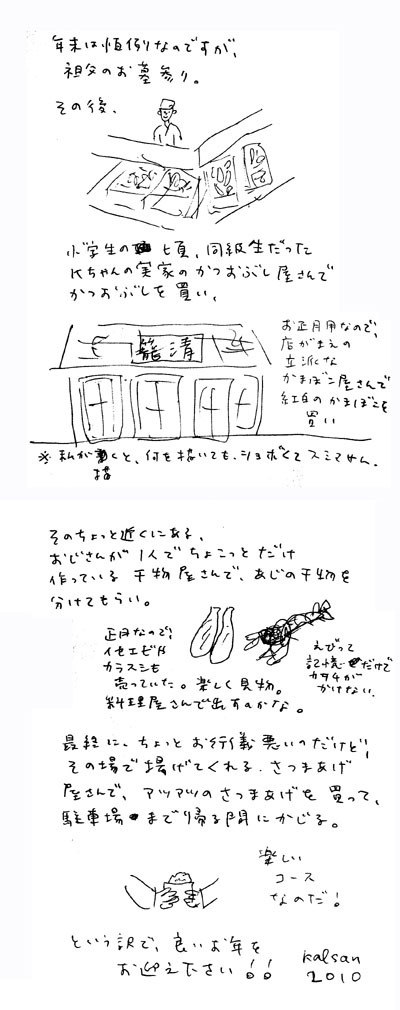 年末は恒例なのですが、
祖父のお墓参り。
その後、
小学生の頃、同級生だった
Kちゃんの実家のかつおぶし屋さんで
かつおぶしを買い、
籠清
お正月用なので、
店がまえの
立派な
かまぼこ屋さんで
紅白のかまぼこを
買い
※私が描くと、何を描いても、ショボくてスミマせん。
そのちょっと近くにある、
おじさんが1人でちょこっとだけ
作っている干物屋さんで、あじの干物を
分けてもらい。
正月なので、
イセエビや
カラスミも
売っていた。楽しく見物。
料理屋さんで出すのかな。
えびって
記憶だけで
カタチが
かけない.
最終に、ちょっとお行儀悪いのだけど、
その場で揚げてくれる、さつまあげ
屋さんで、アツアツのさつまあげを買って、
駐車場まで帰る間にかじる。
楽しい
コース
なのだ!
という訳で、良いお年を
お迎え下さい!!
kalsan
2010